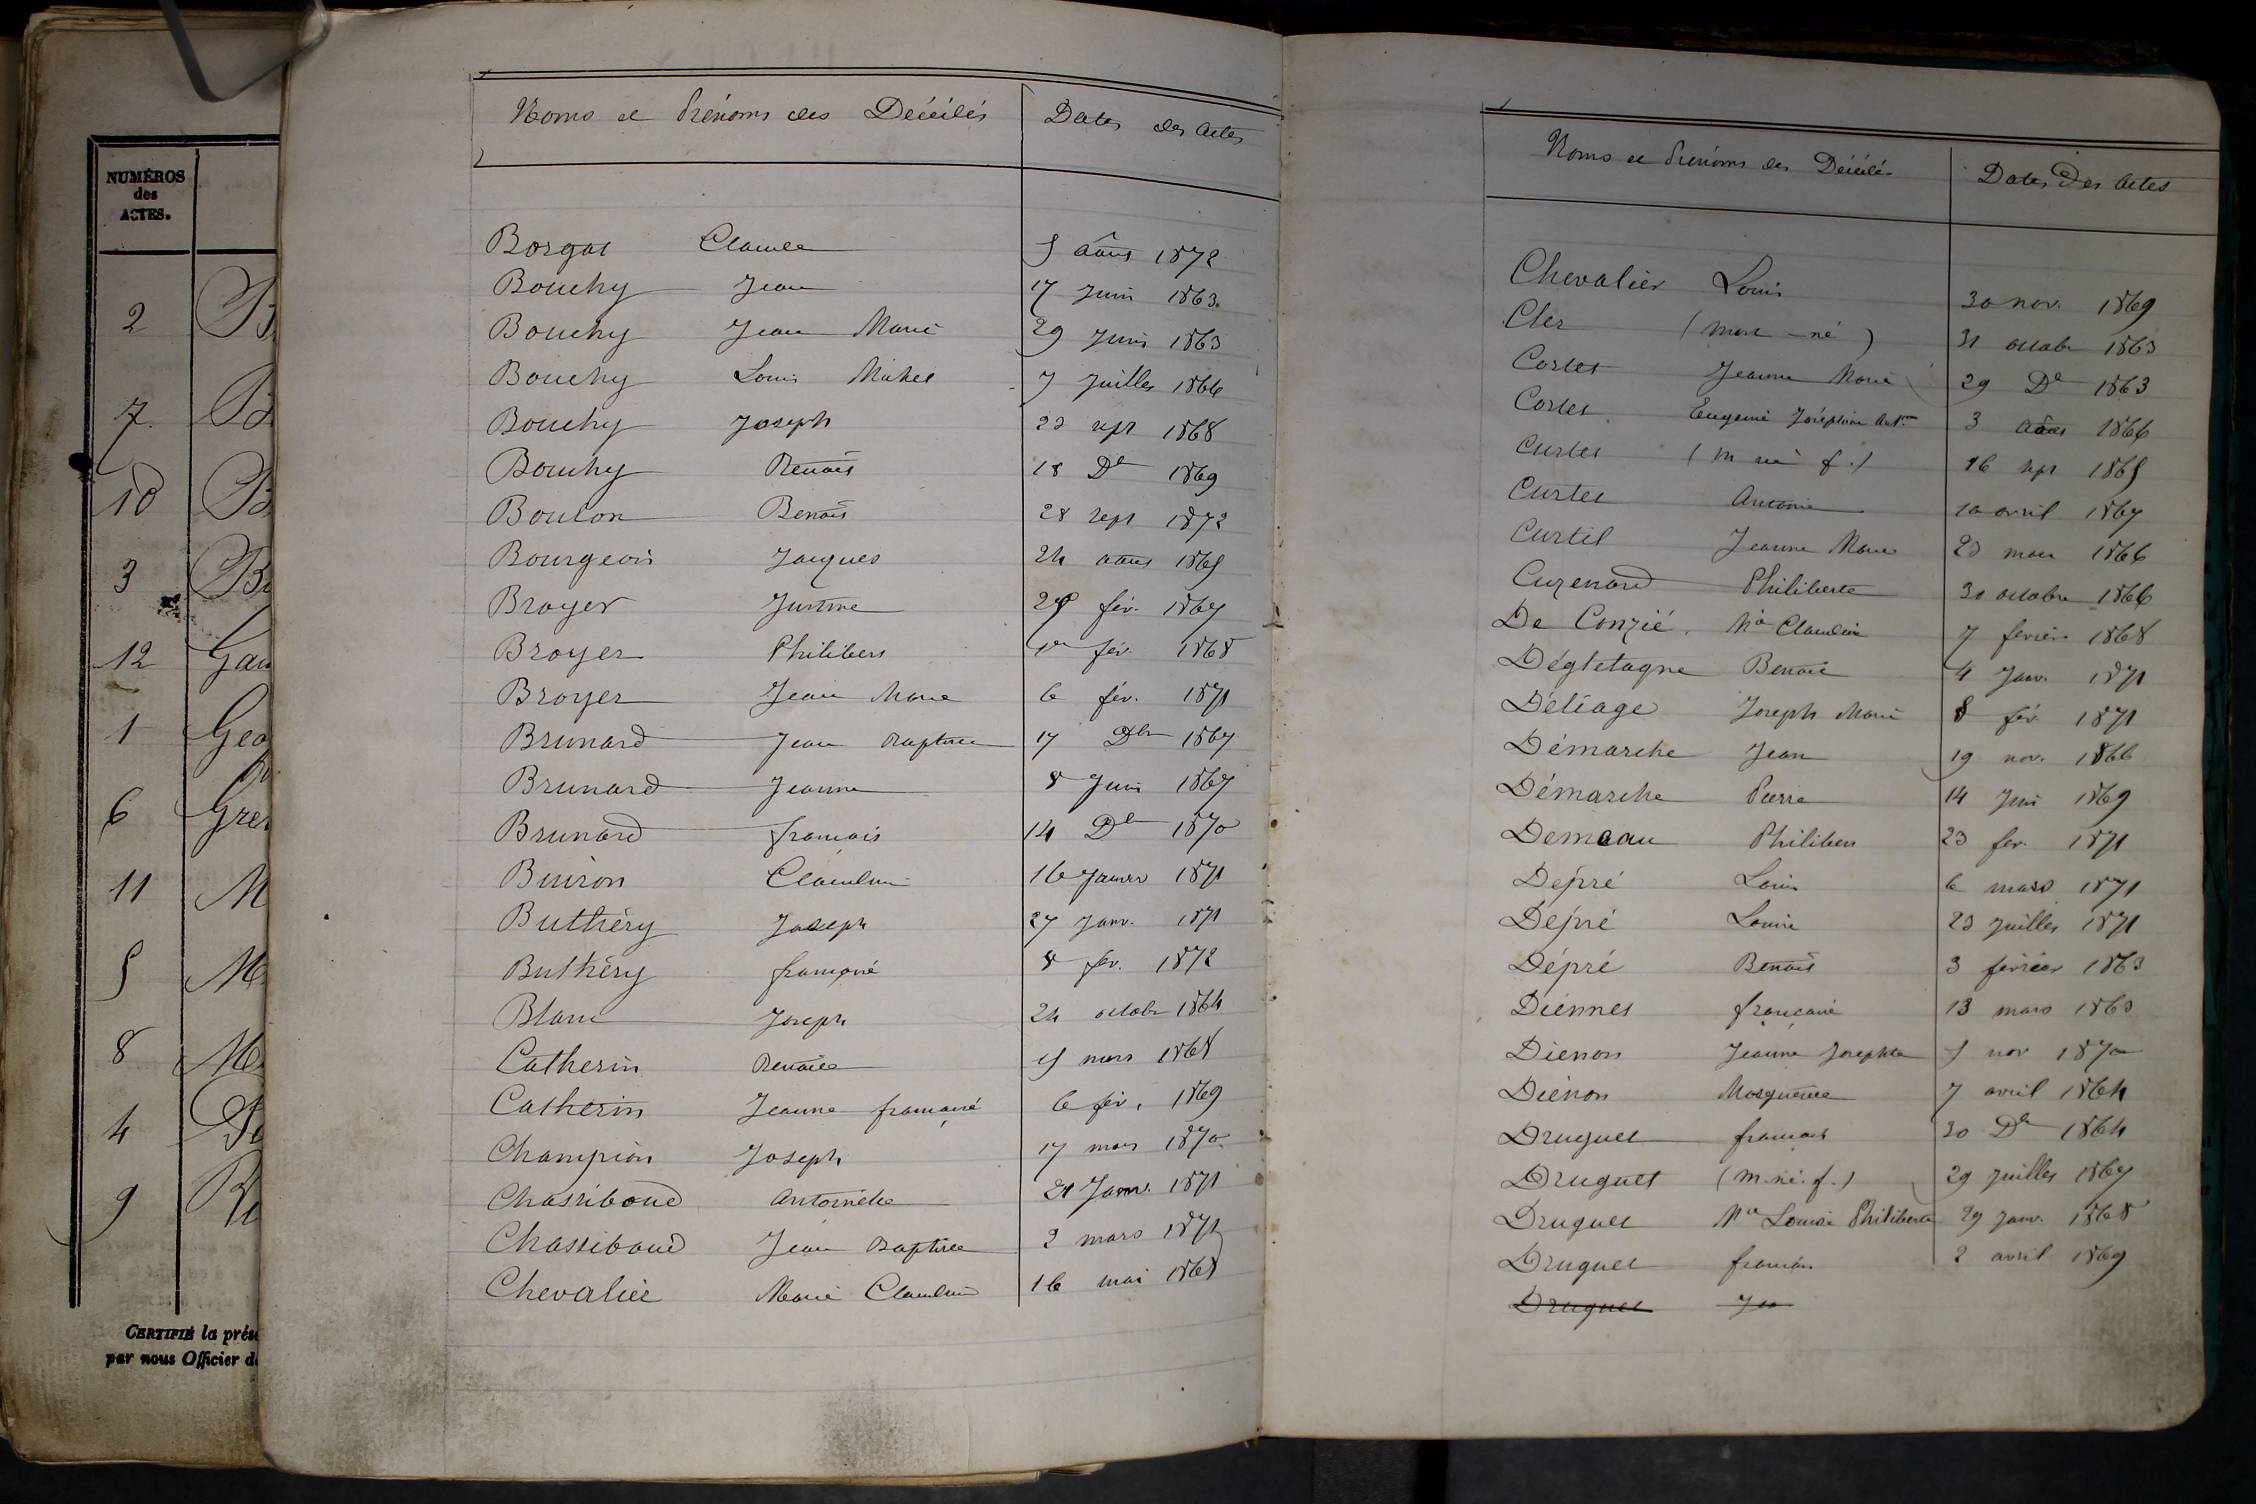 NUMÉROS
des
ACTES.
2 B
7. B
10 B
3 Br
12 Gau
1 Geo
6 Gre
11 M
5 M
8 M
4 Pe
9 R
CERTIFIÉ la prése
par nous Officier de
Noms et Prénoms des Décédés Dates des actes
Borgat Claude 5 août 1872
Bouchy Jean 17 Juin 1863.
Bouchy Jean Marie 29 Juin 1863
Bouchy Louis Michel 7 Juillet 1866
Bouchy Joseph 23 sept 1868
Bouchy Benoit 18 Dе 1869
Boulon Benoit 28 sept 1872
Bourgeois Jacques 24 août 1865
Broyer Justine fév. 1867
Broyer Philibert 1er fév. 1868
Broyer Jean Marie 6 fév. 1871
Brunard Jean Baptiste 17 Dbre 1867
Brunard Jeanne 8 Juin 1867
Brunard françois 14 De 1870
Buiron Claudine 16 Janvier 1871
Buthéry Joseph 27 Janv. 1871
Buthéry françoise 8 fév. 1872
Blanc Joseph 24 octobre 1864
Catherin Benoite 15 mars 1865
Catherin Jeanne françoise 6 fév. 1869
Champion Joseph 17 mars 1870
Chassiboud Antoinette 21 Janv. 1871
Chassiboud Jean Baptiste 2 mars 1871
Chevalier Marie Claudine 16 mai 1865
Noms et Prénoms des Décédés Dates Des actes
Chevalier Louis 30 nov. 1869
Cler (mort-né) 31 octobre 1863
Cortet Jeanne Marie 29 De 1863
Cortet Eugenie Joséphine Antne 3 août 1866
Curtet (m né f.) 16 sept 1865
Curtet Antoine 10 avril 1867
Curtil Jeanne Marie 23 mars 1866
Cuzenard Philiberte 30 octobre 1866
De Conzié. Mie Claudine 7 fevrier 1868
Dégletagne Benoit 4 Janv. 1871
Déliage Joseph Marie 8 fév. 1871
Démarche Jean 19 nov. 1866
Démarche Pierre 14 Juin 1869
Demeau Philibert 23 fev. 1871
Dépré Louis 6 mars 1871
Dépré Louise 23 Juillet 1871
Dépré Benoit 3 février 1863
Diénnet françoise 13 mars 1863
Dienon Jeanne Josephte 5 nov 1870
Diénon Marguerite 7 avril 1864
Druguet françois 30 De 1864
Druguet (m.né.f.) 29 Juillet 1867
Druguet Mie Louise Philiberte 29 Janv. 1868
Druguet françois 2 avril 1869
Druguet Je